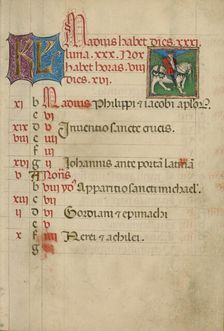 KL Madius habet dies. xxxi
luna. xxx. Nox
habet horas. viii
dies. xvi.
xi b Madius Philippi et iacobi aplor.
c vi
xix d v Inventio sancte crucis.
viii e iiii
f iii
xvi g ii Johannis ante portā latinā
v A Nonis
b viii ydº Apparitio sancti michael'.
c vii
ii d vi Gordiani et epimachi
e v
x f iiii Nerei et achilei.